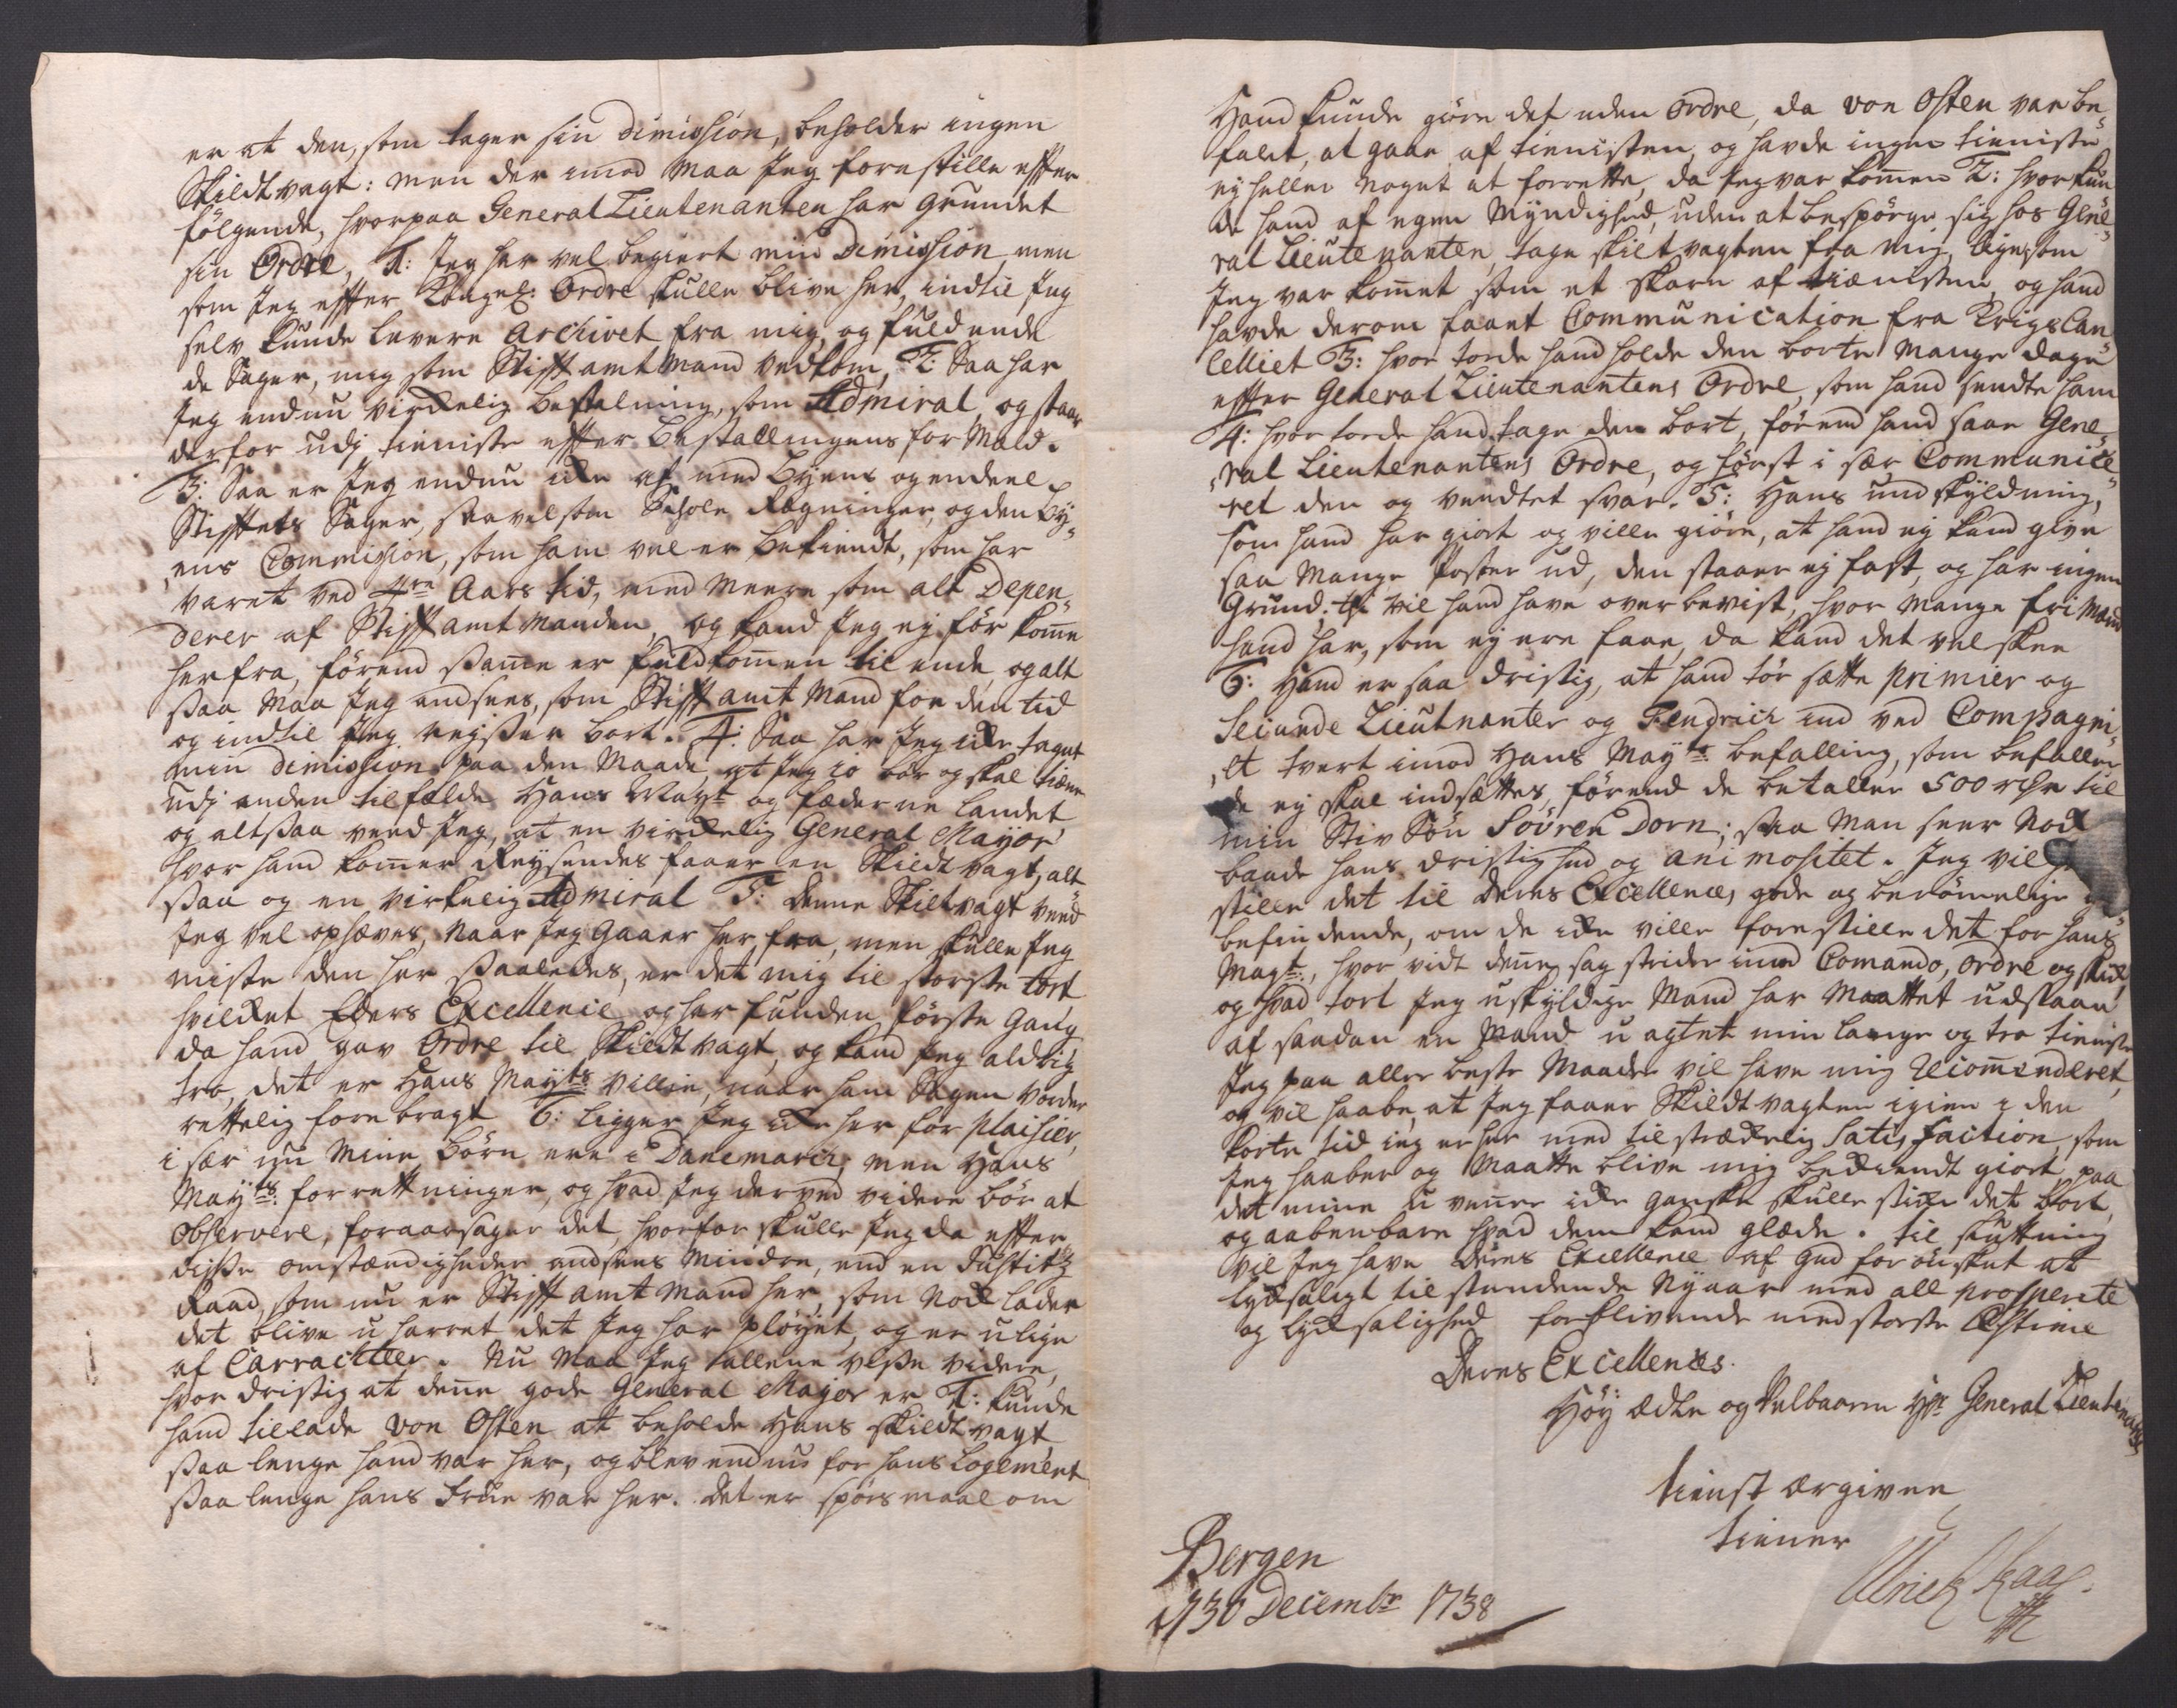 er at den, som tager sin dimission, beholder ingen
Skildtvagt: men der imod maa Jeg forestille efter
fölgende, hvorpaa General Lieutenanten har grundet
sin Ordre, 1: Jeg har vel begiert min Dimission, men
som Jeg efter Kongel: Ordre skulle blive her, indtil Jeg
selv kunde levere Archivet fra mig, og fuldende
de Sager, mig som Stifft amt Mand vedkom, 2: Saa har
Jeg endnu virkelig bestalning, som Admiral, og staar
derfor udj tieniste efter Bestallingens for Mald.
3: Saa er Jeg endnu icke af med Byens og endeel
Stiftets Sager, saavelsom Schole Regninger, og den By„
„ens Commission, som ham vel er bekiendt, som har
varet ved 4re Aars tid, med meere som alt Depen„
derer af Stifft amt manden, og kand Jeg ej för komme
herfra, förend samme er fuldkommen til ende, og alt
saa maa Jeg ansees, som Stifft amt Mand for den tid
og indtil Jeg rejser bort. 4: Saa har Jeg icke taget
min dimission paa den Maade, at Jeg jo bör og skal tiene
udj anden tilfelde Hans Mayt og fæderne landet
og altsaa veed Jeg, at en virkelig General Mayor
hvor hand kommer Reysendes faaer en Skildt vagt, alt
saa og en virkelig Admiral 5: denne Skiltvagt veed
Jeg vel ophæves, naar Jeg gaaer her fra, men skulle Jeg
miste den her saaledes, er det mig til störste tort
hvilcket Eders Excellence og har funden förste gang
da hand gav Ordre til Skildtvagt, og kand Jeg aldrig
tro, det er Hans Mayts villie, naar ham Sagen vorder
rettelig fore bragt 6: ligger Jeg icke her for plaisier,
i sær nu mine börn ere i Danemarck; men Hans
Mayts: forrettninger, og hvad Jeg derved videre bör at
observere, foraarsager det, hvorfor skulle Jeg da efter
disse omstændigheder ansees mindre, end en Justitz
Raad, som nu er Stifft amt mand her, som nock lader
det blive u harvet det Jeg har plöyet, og er ulige
af Carrackteer. Nu maa Jeg allene vise videre,
hvor dristig at denne gode General Major er 1: kunde
hand tillade von Osten at beholde hans skildtvagt,
saa lenge hand var her, og blev endnu for hans Logement
saa lenge hans Frue var her. det er spörsmaal om
Hand kunde giöre det uden Ordre, da von Osten var be„
falet, at gaae af tienisten, og havde ingen tieniste
ej heller noget at forrette, da Jeg var kommen 2: hvor kun
de hand af egen Myndighed, uden at bespörge sig hos Gene„
ral Lieutenanten, tage skiltvagten fra mig, ligesom
Jeg var kommet som et skarn af tiænisten, og hand
havde derom faaet Communication fra Krigs Can„
celliet 3: hvor torde hand holde den borte mange dage
efter General Lieutenantens Ordre, som hand sendte ham
4: hvor torde hand tage den bort, förend hand saae Gene„
„ral Lieutenantens Ordre, og först i sær Communice„
ret den og vendtet svar. 5: Hans undskyldning,
som hand har giort og ville giöre, at hand ej kand give
saa mange Poster ud, den staaer ej fast, og har ingen
Grund; vil hand have overbevist, hvor mange fri mænd
hand har, som ej ere faae, da kand det vel skee
6: Hand er saa dristig, at hand tör sætte primier og
Secunde Lieutnanter og Fendrich ind ved Compagni„
„et tvert imod Hans Mayts befalling, som befaller
de ej skal indsættes, förend de betaller 500 rdr til
min Stiv Sön Sövren Dorn; saa man seer nock
baade hans dristighed og animositet. Jeg vil
stille det til deres Excellences gode og berömmelige
befindende, om de icke ville forestille det for hans
Mayt:, hvor vidt denne sag strider imod Comando, ordre og skick
og hvad tort Jeg uskyldige Mand har maattet udstaae
af saadan en Mand u agtet min lange og tro tieniste
Jeg paa aller beste Maade vil have mig Recommenderet,
og vil haabe, at Jeg faaer Skildtvagten igien i den
korte tid jeg er her med tilstrækkelig Satisfaction, som
Jeg haaber og maatte blive mig bekiendt giort, paa
det mine u venner icke ganske skulle see det stort,
og aabenbare hvad dem kand glæde. til sluttning
vil Jeg have deres Excellence af Gud for önsket at
lycksaligt tilstundende Nyaar med all prosperite
og Lycksalighed forblivende med störste Æstime
Deres Excellences.
Höy ædle og Velbaarne Hr General Lieutenants
tienst ærgivne
tiener
Ulrich Kaas.
Bergen
d 30 Decembr 1738